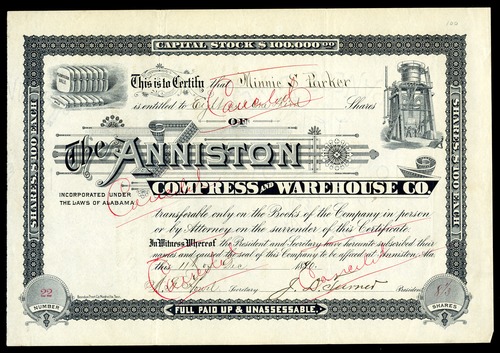 100
CAPITAL STOCK $100.000.00
This is to Certify That Minnie S. Parker
is entitled to Shares
Cancelled
OF
The ANNISTON
COMPRESS AND WAREHOUSE CO.
INCORPORATED UNDER
THE LAWS OF ALABAMA.
Cancelled
transferable only on the Books of the Company in person
or by Attorney on the surrender of this Certificate.
In Witness Whereof the President and Secretary have hereunto subscribed their
names and caused the seal of this Company to be affixed at Anniston, Ala.
this
Cancelled
Cancelled
Secretary J. D. Turner President
22
NUMBER
SHARES
FULL PAID UP & UNASSESSABLE.
SHARES $100 EACH
SHARES $100 EACH